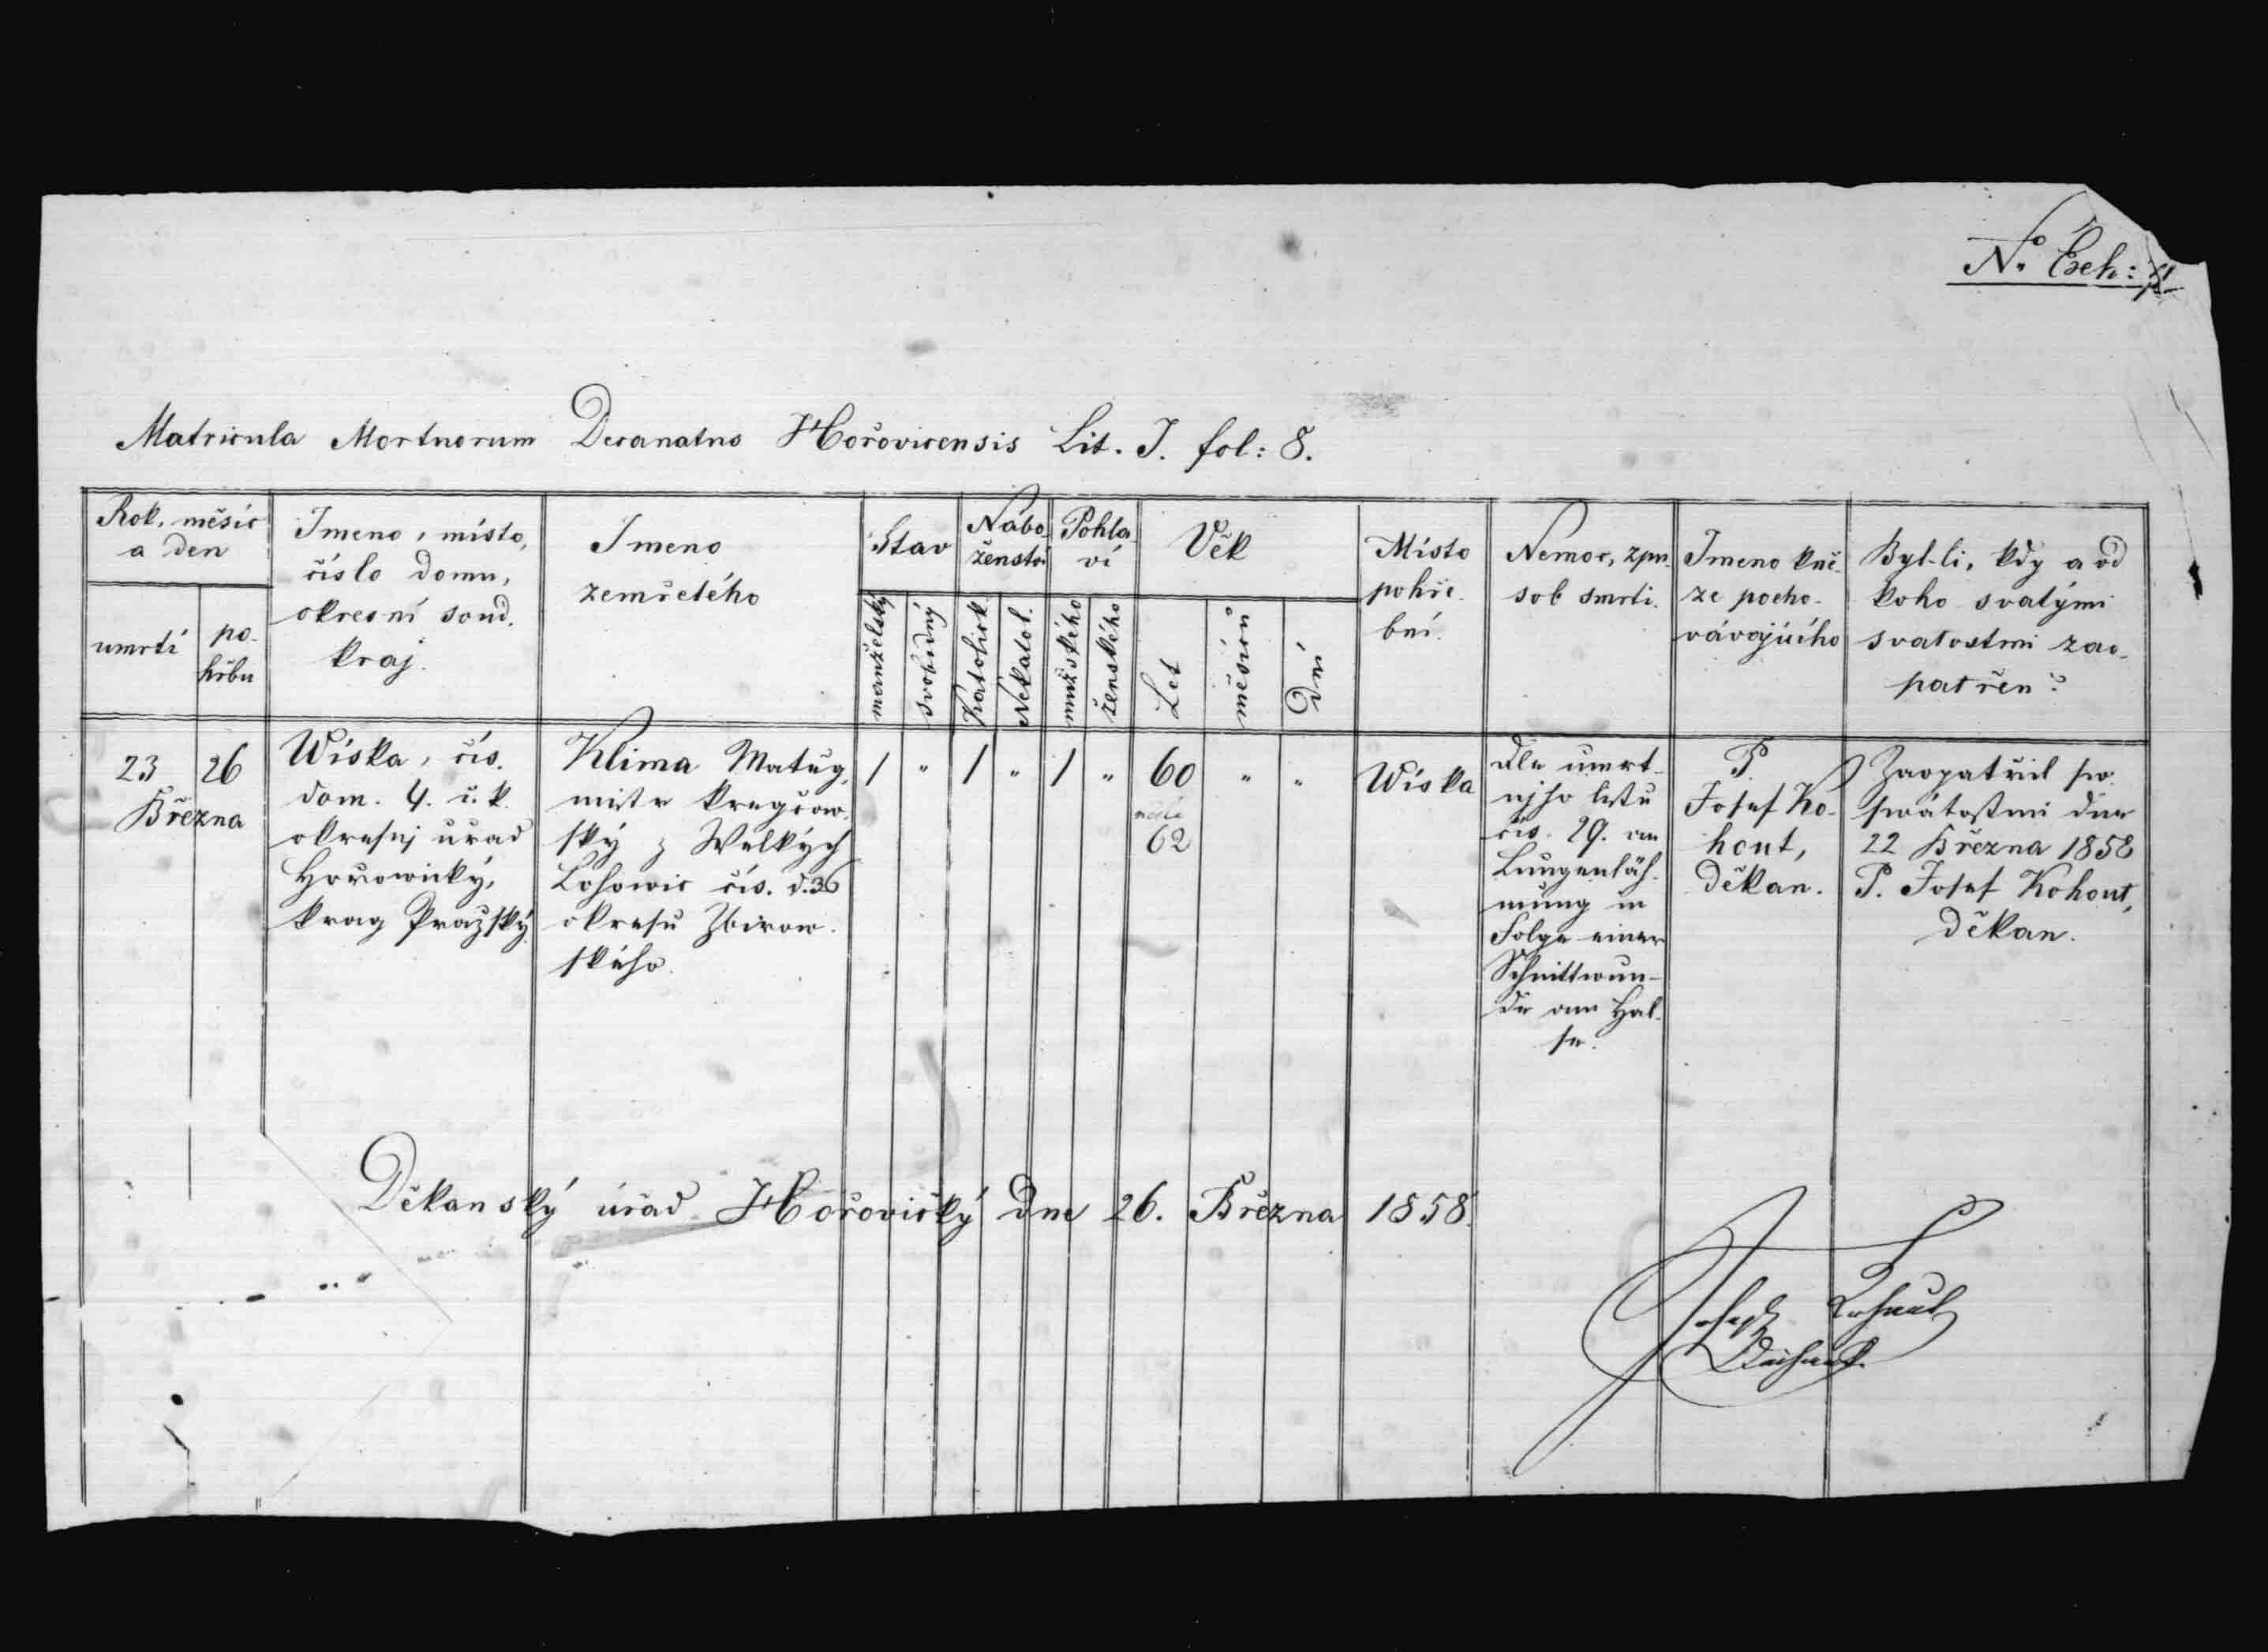 N° Exh:
Matricula Mortuorum Decanatus Hořovicensis Lit. I. fol: 8.
Rok, měsíc
a den
umrtí
po-
hřbu
Jmeno, místo,
číslo domu,
okresní soud.
kraj.
Jmeno
zemřelého
Stav
manželský
svobodný
Nábo-
ženství
Katolick.
Nekatol.
Pohla-
ví
mužského
ženského
Věk
Let
měsíců
Dní
Místo
pohře-
bní.
Nemoc, způ-
sob smrti.
Jmeno kně-
ze pocho-
vávajícího
Byl-li, kdy a od
koho svatými
svatostmi zao-
patřen?
23
26
Března
Wiska, čís.
dom. 4. c. k.
okresnj uřad
Hořowický,
krag Pražský
Klima Matěg,
mistr kregčow-
ský z Welkých
Lohowic čís. d. 36
okresu Zbirow-
ského.
1 " 1 " 1 " 60 " "
62
Wiska
dle umrt-
njho listu
čís. 29. an
Lungenläh-
mung in
Folge einer
Schnittwun-
de am Hal-
se.
P
Josef Ko-
hout,
děkan.
Zaopatřil sw.
swátostmi dne
22 Března 1858
P. Josef Kohout,
děkan.
Děkanský úřad Hořovický dne 26. Března 1858.
Joseph Kohout
Dechant